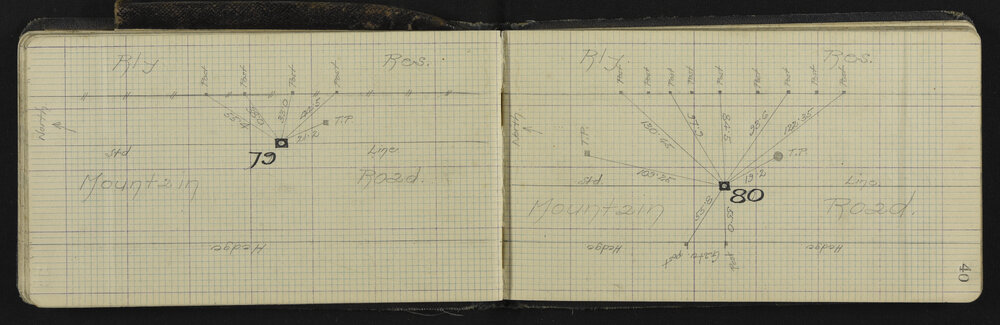 Rly Res.
Post Post Post Post
North
55.4
55.0
39.0
21.2
T.P.
79
Std Line
Mountain Road.
Hedge
Rly. Res.
Post Post Post Post Post Post Post Post
North
97.2
84.5
95.6
122.35
T.P.
T.P.
103.25
19.2
Std. Line
80
Mountain Road.
53.8
55.0
Hedge Gate post Post Hedge
40